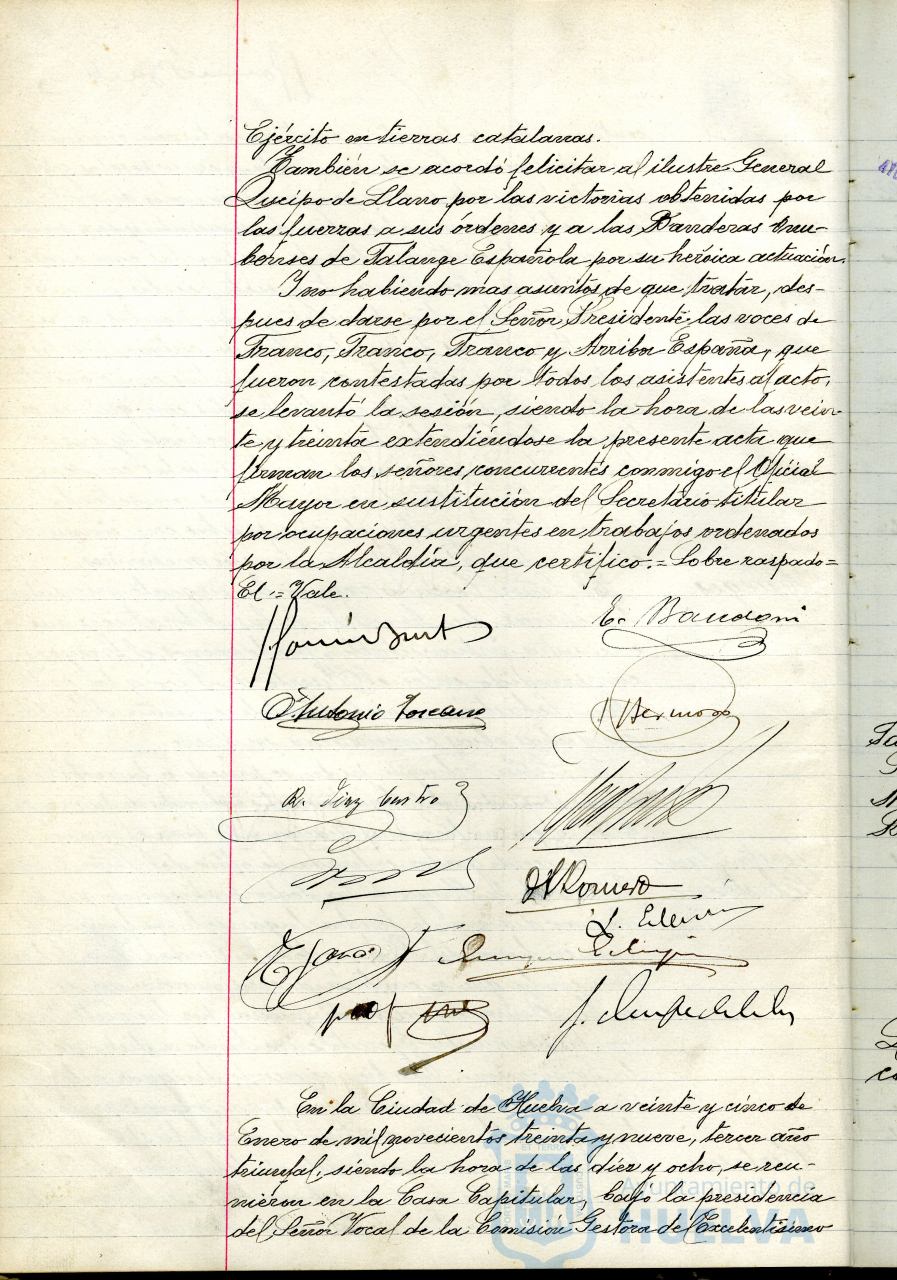 Ejército en tierras catalanas.
También se acordó felicitar al ilustre General
Queipo de Llano por las victorias obtenidas por
las fuerzas a sus órdenes y a las Banderas onu-
benses de Falange Española por su heróica actuación.
Y no habiendo mas asuntos de que tratar, des-
pues de darse por el Señor Presidente las voces de
Franco, Franco, Franco y Arriba España, que
fueron contestadas por todos los asistentes al acto,
se levantó la sesión, siendo la hora de las vein-
te y treinta extendiéndose la presente acta que
firman los señores concurrentes conmigo el Oficial
Mayor en sustitución del Secretario titular
por ocupaciones urgentes en trabajos ordenados
por la Alcaldía, que certifico.= Sobre raspado=
El.= Vale.
E. Bandoni
Antonio Toscano
Hermoso
R. Diaz Castro
Romero
En la Ciudad de Huelva a veinte y cinco de
Enero de mil novecientos treinta y nueve, tercer año
triunfal, siendo la hora de las diez y ocho, se reu-
nieron en la Casa Capitular, bajo la presidencia
del Señor Vocal de la Comisión Gestora del Excelentísimo
Ayuntamiento de
HUELVA